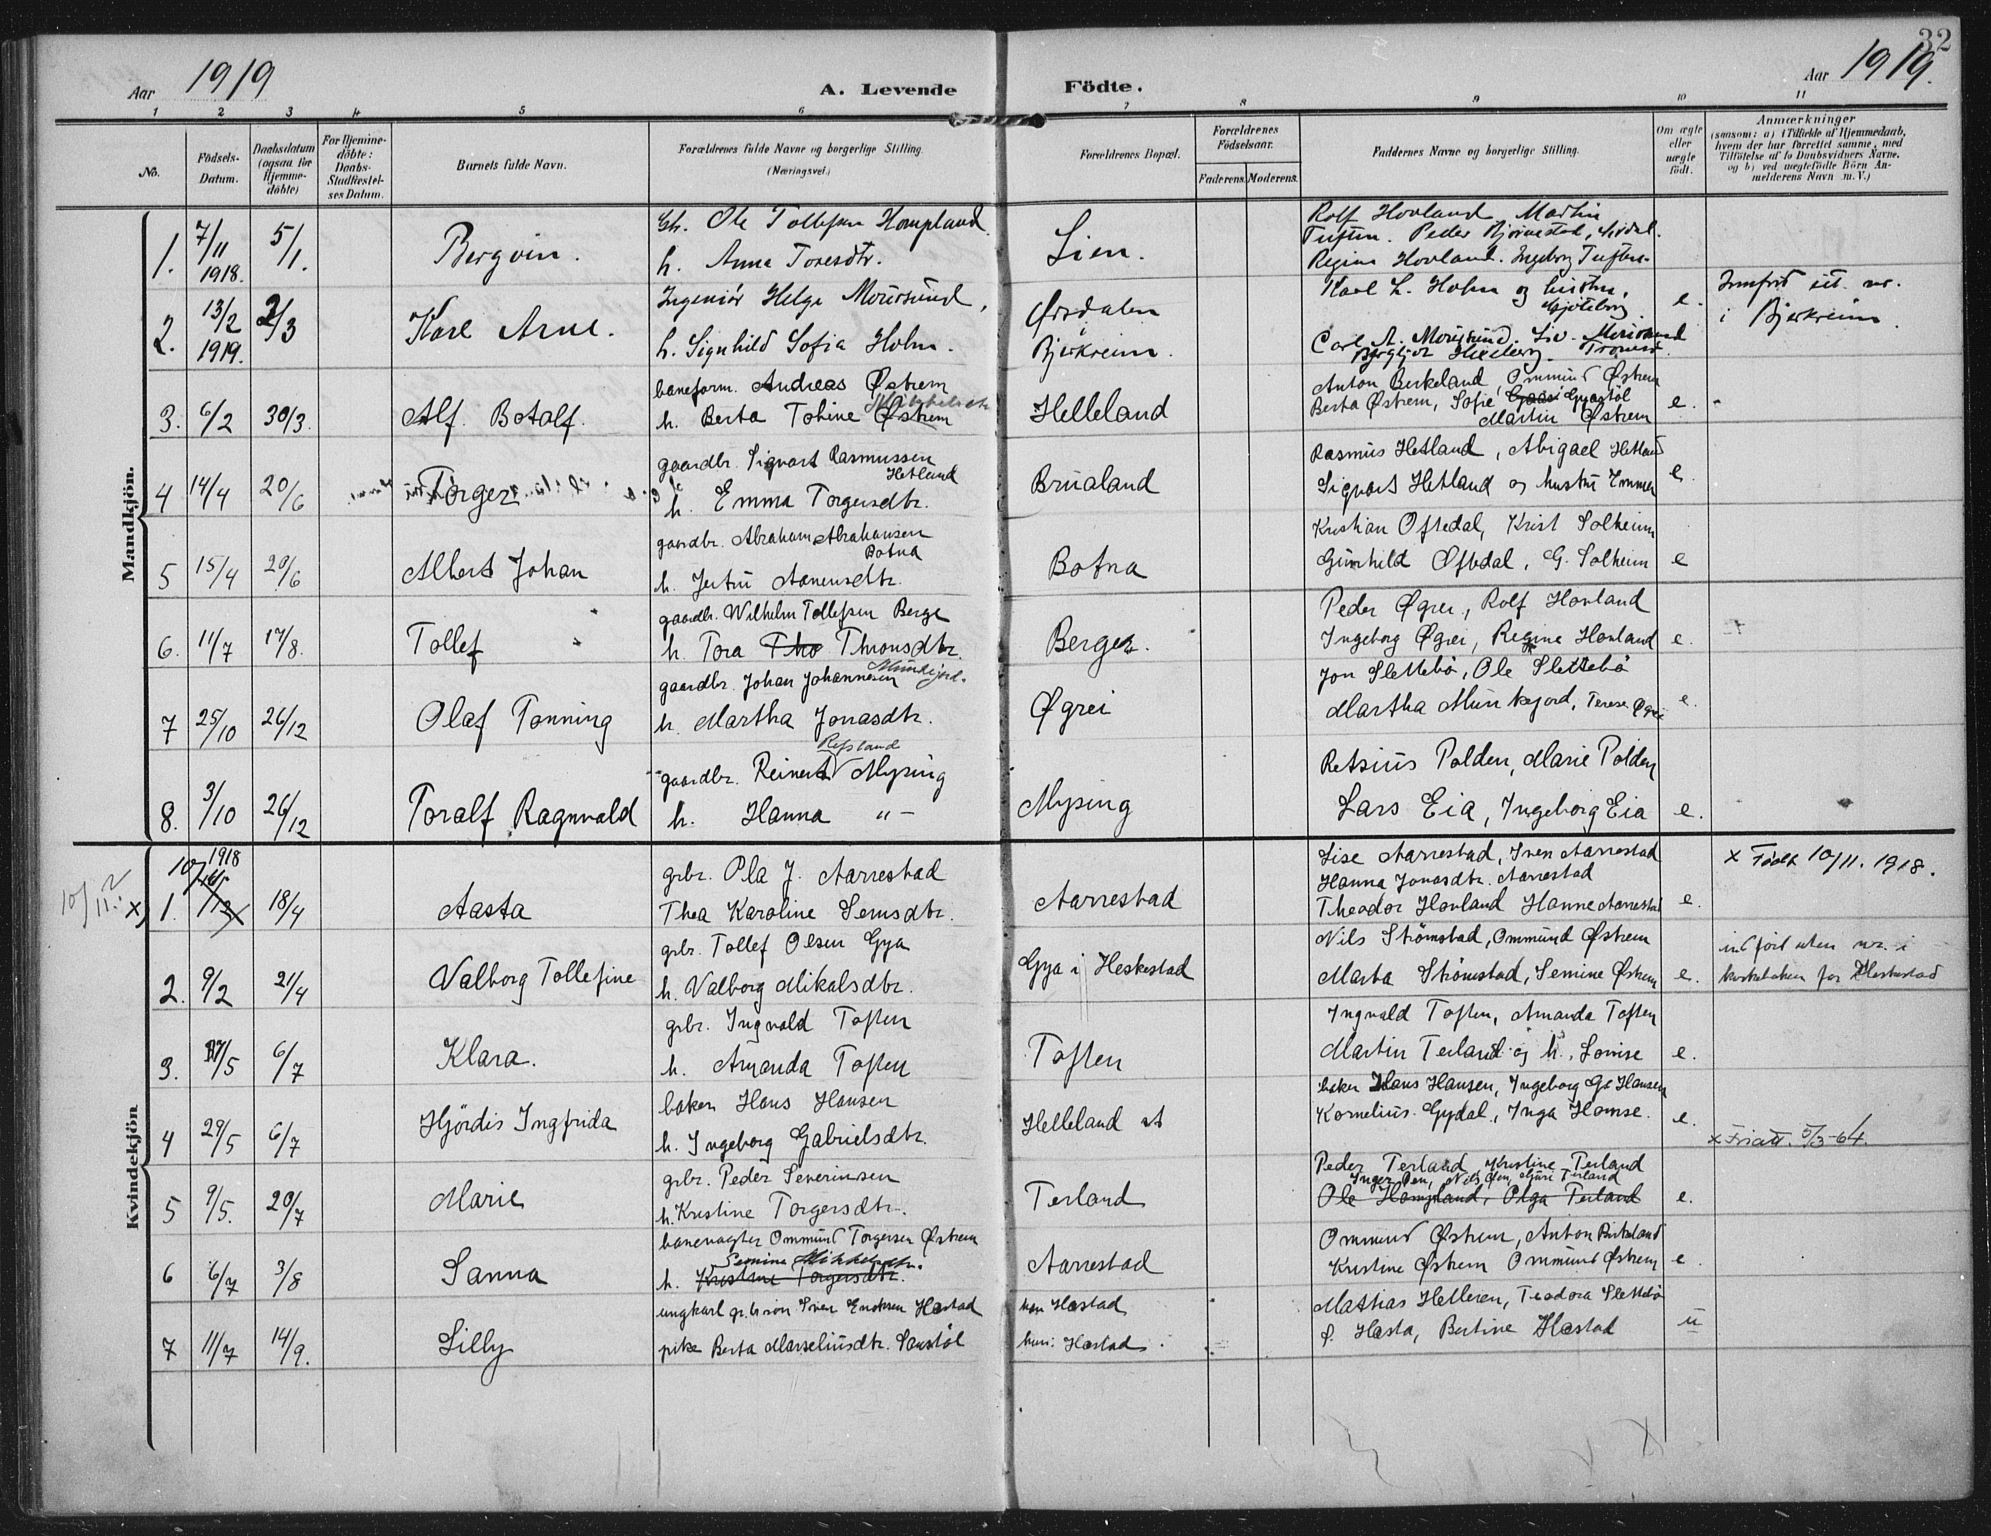 32
Aar 1919
A. Levende
Födte.
Aar 1919.
1 2 3 4 5 6 7 8 9 10 11
No.
Födsels-
Datum.
Daabsdatum
(ogsaa for
Hjemme-
döbte)
For Hjemme-
döbte:
Daabs-
Stadfæstel-
ses Datum.
Barnets fulde Navn.
Forældrenes fulde Navne og borgerlige Stilling.
(Næringsvei.)
Forældrenes Bopæl.
Forældrenes
Födselsaar.
Faderens. Moderens.
Faddernes Navne og borgerlige Stilling.
Om ægte
eller
uægte
födt.
Anmærkninger
(saasom: a) i Tilfælde af Hjemmedaab,
hvem der har forrettet samme, med
Tilföielse af to Daabsvidners Navne,
og b) ved uægtefödte Börn An-
melderens Navn m. V.)
Mandkjön.
1. 7/11 1918. 5/1. Bergvin.
Ole Tollefsen Hompland
h. Anna Toresdtr.
Lien.
Rolf Hovland Martin
Tuften. Peder Bjørnestad, Sirdal.
Regine Hovland. Ingeborg Tuften.
2. 13/2 1919. 2/3 Karl Arne.
Ingeniör Helge Mourssund,
h. Signhild Sofia Holm.
Ørsdalen
Bjerkreim.
Karl L. Holm og hustru,
Gjöteborg.
e.
i Bjerkreim
3. 6/2 30/3. Alf. Botolf.
baneform. Andreas Østrem
h. Berta Tobine Østrem
Helleland
Anton Birkeland, Ommund Østrem
Berta Østrem, Sofie Gyastöl
Martin Østrem
e.
4 14/4 20/6 Torger
gaardbr. Sigvart Rasmussen
Hetland
h. Emma Torgersdtr.
Brualand
Rasmus Hetland, Abigael Hetland
Sigvart Hetland og hustru Emma
e
5 15/4 20/6 Albert Johan
gaardbr. Abraham Abrahamsen
Botna
h. Jertru Aanensdtr.
Botna
Kristian Oftedal, Krist Solheim
Gunhild Oftedal, G. Solheim
e
6. 11/7 17/8. Tollef
gaardbr. Wilhelm Tollefsen Berge
h. Tora Tho Thronsdtr.
Berge.
Peder Øgrei, Rolf Hovland
Ingeborg Øgrei, Regine Hovland
e.
7 25/10 26/12 Olaf Tonning
gaardbr. Johan Johannesen
h. Martha Jonasdtr.
Øgrei
Jon Slettebö, Ole Slettebö
Martha Munkejord, Terese Øgrei
e.
8. 3/10 26/12 Toralf Ragnvald
Refsland
gaardbr. Reinert Mysing
h. Hanna "-
Mysing
Retsius Polden, Marie Polden
Lars Eia, Ingeborg Eia
e.
Kvindekjön
x) 1. 10/11 1918 18/4 Aasta
grbr. Ola J. Aarrestad
Thea Karoline Semsdtr.
Aarrestad
Lise Aarrestad, Sven Aarrestad
Hanna Jonasdtr. Aarrestad
Theodor Hovland Hanne Aarrestad
e.
x Födt 10/11. 1918.
2. 9/2 21/4 Valborg Tollefine
grbr. Tollef Olsen Gya
h. Valborg Mikalsdtr.
Gya i Heskestad
Nils Strömstad, Ommund Østrem
Marta Strömstad, Semine Østrem
e.
indfört uten nr. i
kirkeboken for Heskestad
3. 17/5 6/7 Klara.
grbr. Ingvald Toften
h. Amanda Toften
Toften
Ingvald Toften, Amanda Toften
Martin Terland og h. Lovise
e.
4 29/5 6/7 Hjördis Ingfrida
baker Hans Hansen
h. Ingeborg Gabrielsdtr.
Helleland st
baker Hans Hansen, Ingeborg Ga Hansen
Kornelius Gydal, Inga Homse.
e.
x 5/3-64.
5 9/5. 20/7 Marie
grbr. Peder Severinsen
h. Kristine Torgersdtr.
Terland
Peder Terland, Kristine Terland
Ole Hompland, Olga Terland
e.
6 6/7 3/8 Sanna
banevagter Ommund Torgersen Østrem
Semine Mikkelsdtr.
h. Kristine Torgersdtr.
Aarrestad
Ommund Østrem, Anton Birkeland
Kristine Østrem Ommund Østrem
e
7 11/7 14/9. Lilly
ungkarl Sven Eriksen Hæstad
pike Berta Marseliusdtr.
han Hæstad
hun: Hæstad
Mathias Helleren, Teodora Slettebö
Hæsta, Bertine Hæstad
u